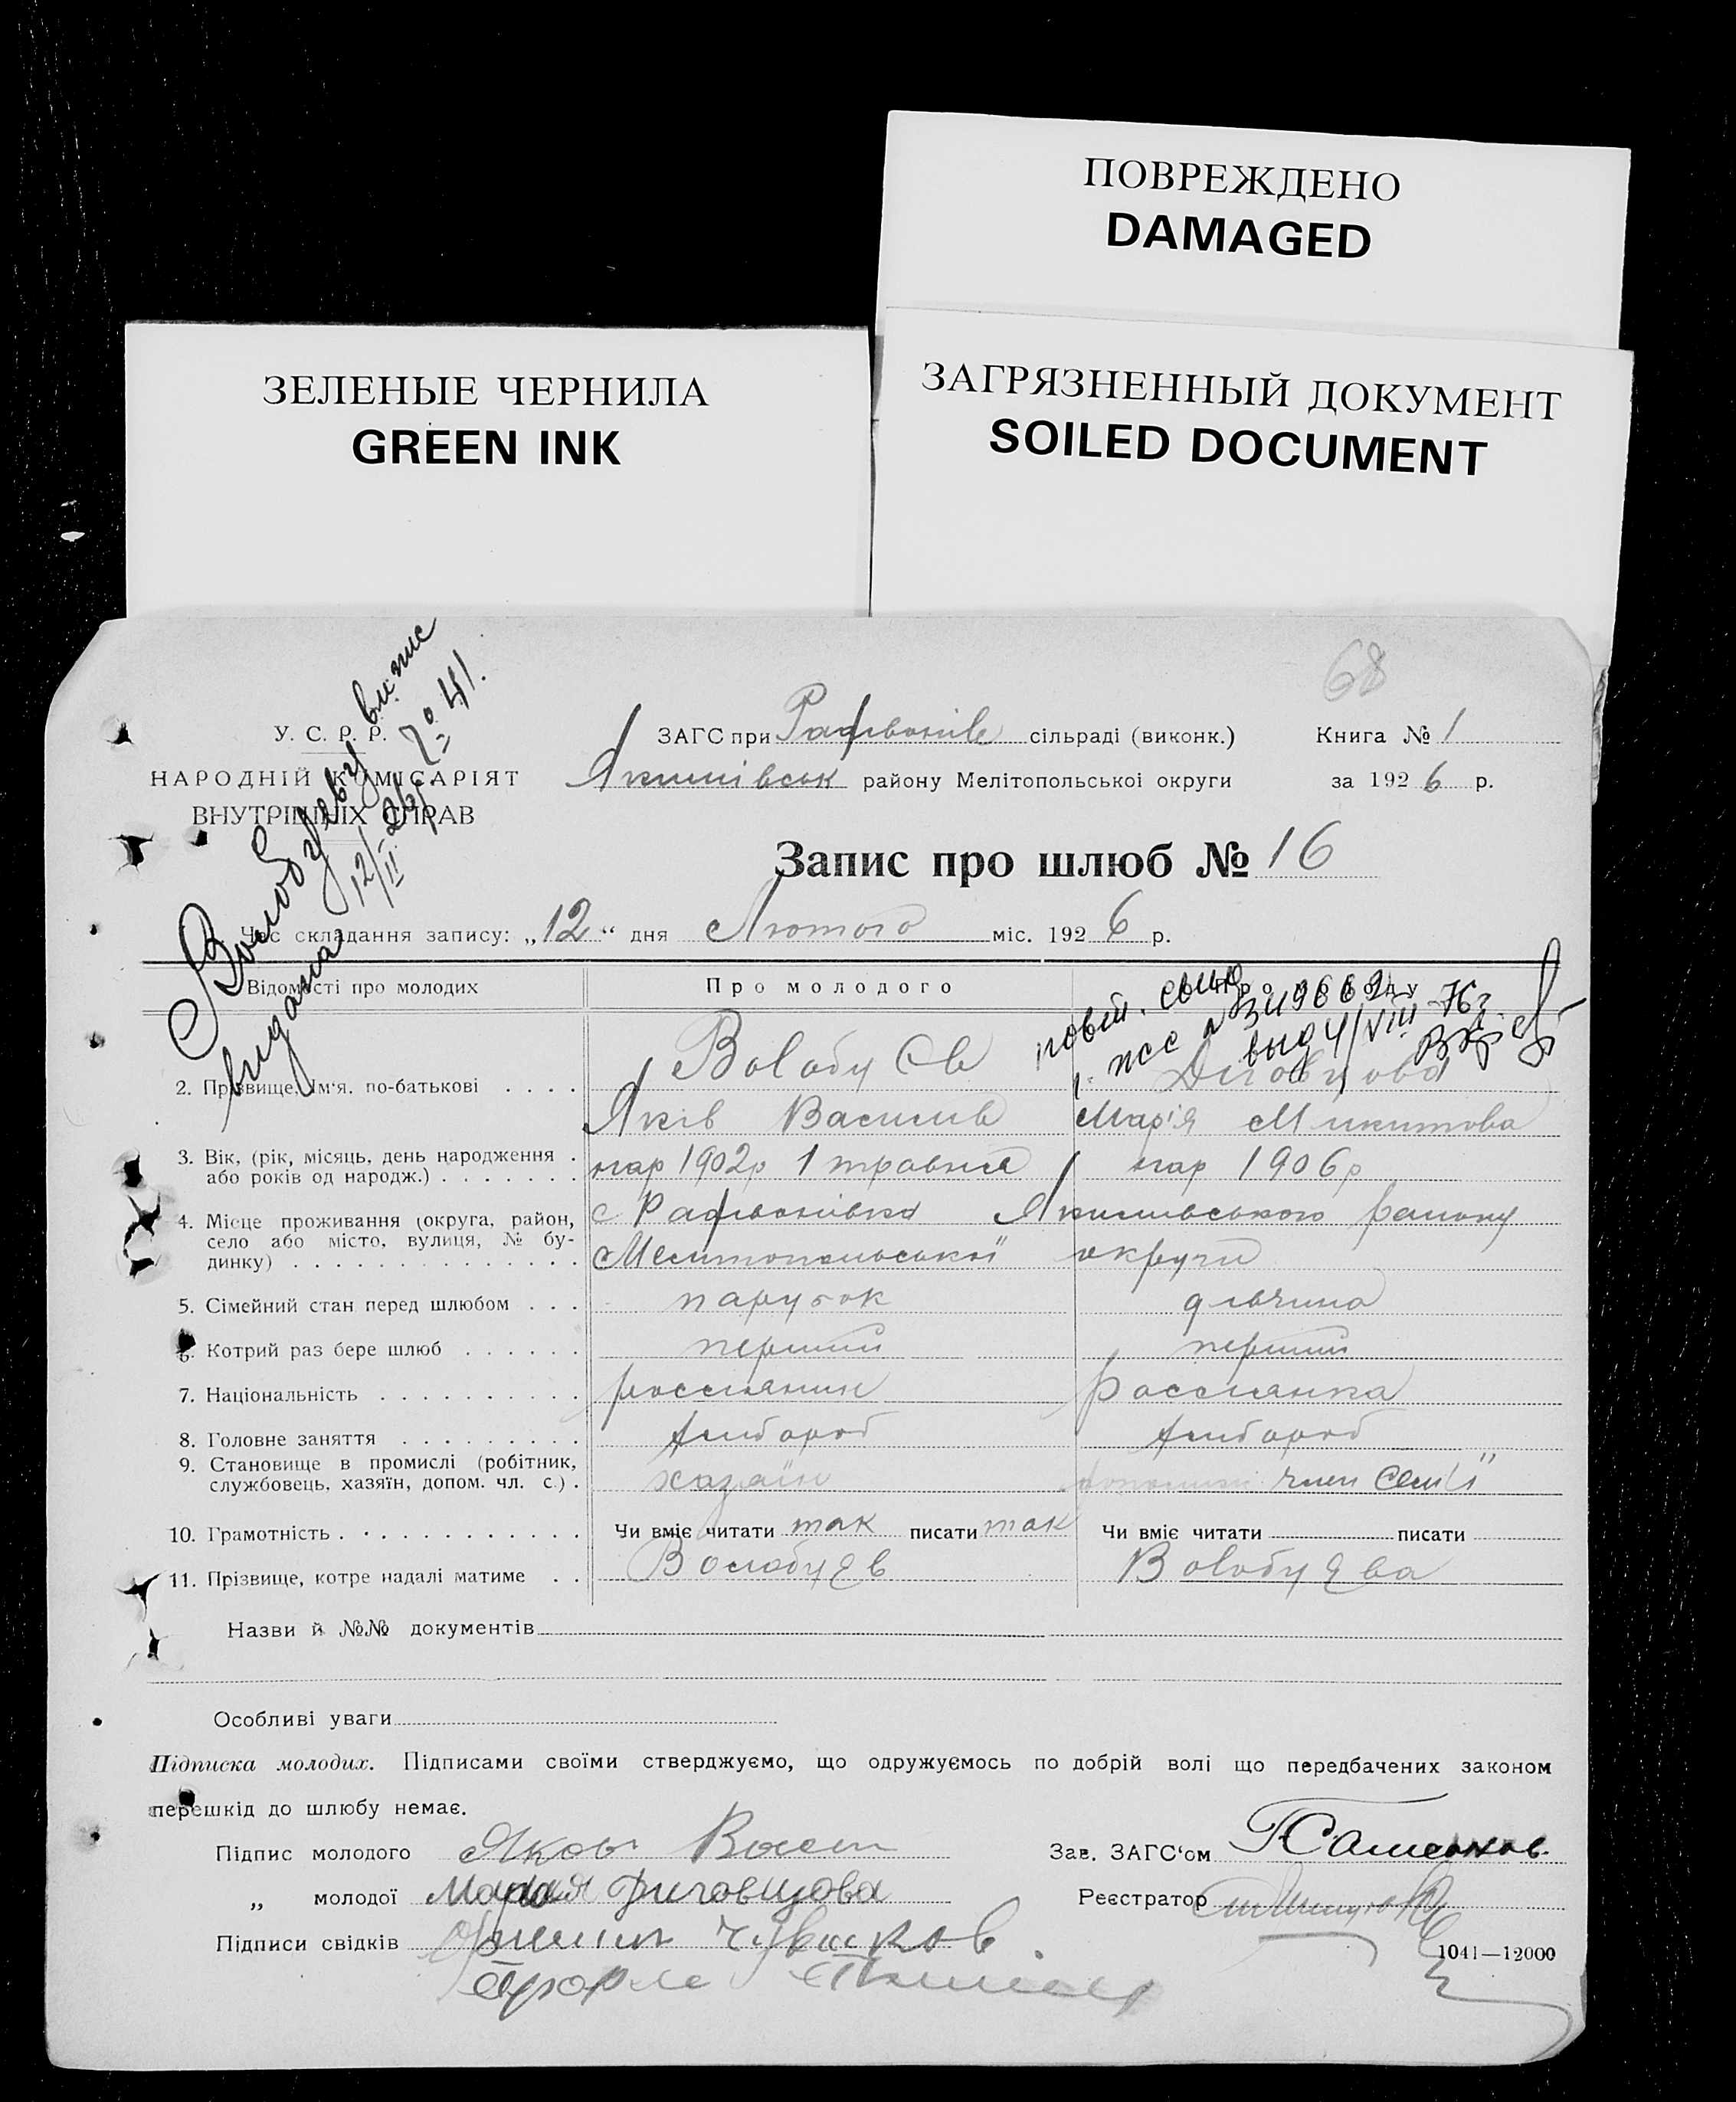 ПОВРЕЖДЕНО
DAMAGED
ЗЕЛЕНЫЕ ЧЕРНИЛА
GREEN INK
ЗАГРЯЗНЕННЫЙ ДОКУМЕНТ
SOILED DOCUMENT
68
У. С. Р. Р.
НАРОДНІЙ КОМІСАРІЯТ
ВНУТРІШНІХ СПРАВ
ЗАГС при сільраді (виконк.)
Якимівськ району Мелітопольскоі округи
Книга № 1
за 1926 р.
Запис про шлюб № 16
Час складання запису: „12“ дня Лютого міс. 1926 р.
Відомості про молодих Про молодого Про молоду
2. Прізвище, ім'я. по-батькові . . . .
Яків Василів Марія Микитова
3. Вік, (рік, місяць, день народження . нар 1902р 1 травня нар 1906р
або років од народж.) . . . . . . .
4. Місце проживання (округа, район, с Якимівського району
село або місто, вулиця, № бу- Мелитопольської округи
динку) . . . . . . . . . . . . . .
5. Сімейний стан перед шлюбом . . . парубок дівчина
6. Котрий раз бере шлюб . . . . . . перший перший
7. Національність . . . . . . . . . . россиянин Россиянка
8. Головне заняття . . . . . . . . . хлібороб хлібороб
9. Становище в промислі (робітник, хазяїн член семьї
службовець, хазяїн, допом. чл. с.) .
10. Грамотність . . . . . . . . . . . . Чи вміє читати так писати так Чи вміє читати писати
11. Прізвище, котре надалі матиме . . Волобуєв Волобуєва
Назви й №№ документів
Особливі уваги
Підписка молодих. Підписами своїми стверджуємо, що одружуємось по добрій волі що передбачених законом
перешкід до шлюбу немає.
Підпис молодого Яков
Зав. ЗАГС'ом
„ молодої Мария
Реєстратор
Підписи свідків
1041—12000